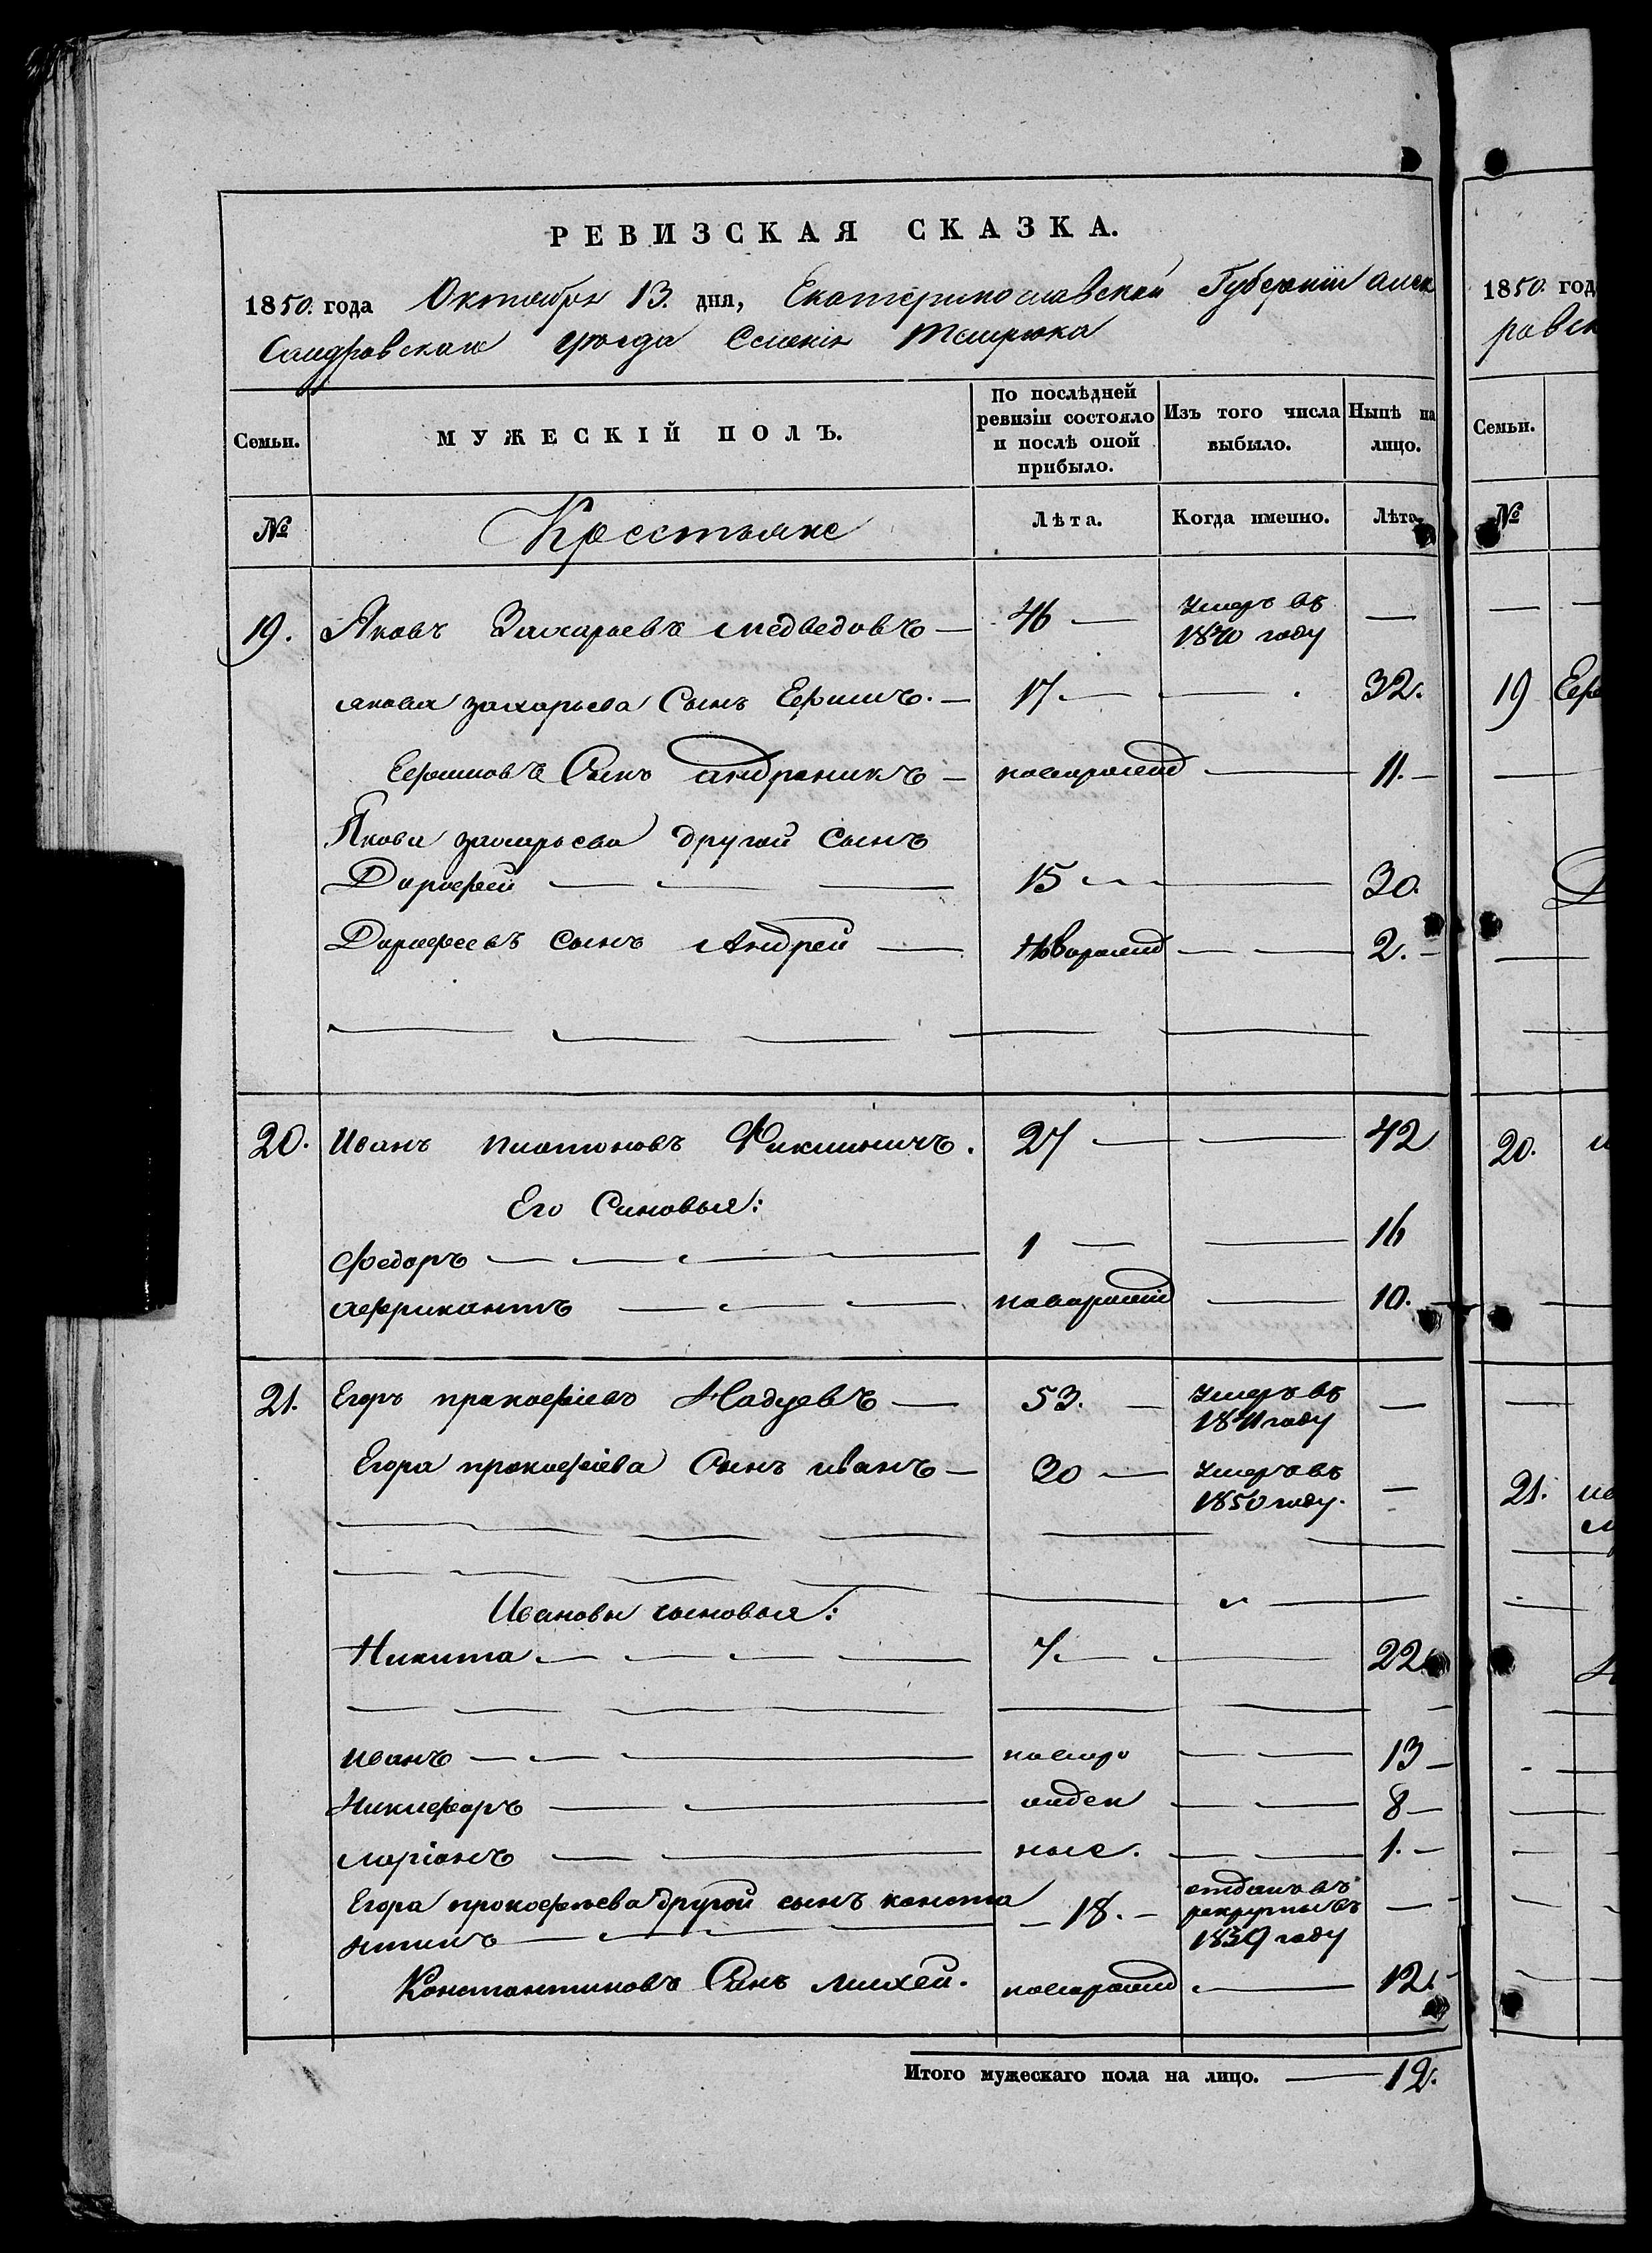 РЕВИЗСКАЯ СКАЗКА.
1850. года Октября 13. дня, Екатеринославской Губерніи Алек
сандровскаго уезда Селенія Темрюка
Семьи.
МУЖЕСКІЙ ПОЛЪ.
По послѣдней
ревизіи состояло
и послѣ оной
прибыло.
Изъ того числа
выбыло.
Нынѣ на
лицо.
№ Крестьяне Лѣта. Когда именно. Лѣта.
19. Яковъ Захарьевъ Медведовъ — 46 — умеръ въ 1840 году —
Якова захарьева Сынъ Ефимъ. — 17 — — 32.
Ефимовъ Сынъ андроникъ — новорожд — 11. —
Якова захарьева другой Сынъ
Дорофей — 15 — — 30.
Дорофеевъ сынъ Андрей — новорожд — 2. —
20. Иванъ Платоновъ 27 — — 42
Его Синовья:
Федоръ — 1 — — 16
Африкантъ — новорожд — 10.
21. Егоръ прокофіевъ Надуевъ — 53. — умеръ въ 1841 году —
Егора прокофіева Сынъ иванъ — 30 — умеръ въ 1850 году. —
Ивановы сыновья:
Никита — 7. — — 22.
иванъ — новоро — 13 —
Никифоръ — жден — 8 —
маріанъ — ные. — 1. —
Егора прокофьева другой сынъ конста
нтинъ — 18. — отданъ въ рекруты въ 1839 году —
Константиновъ Сынъ михей. новорожд — 12.
Итого мужескаго пола на лицо. — 12.
1850. год
ровск
Семьи.
№
19 Ефи
Д
20. и
21. ив